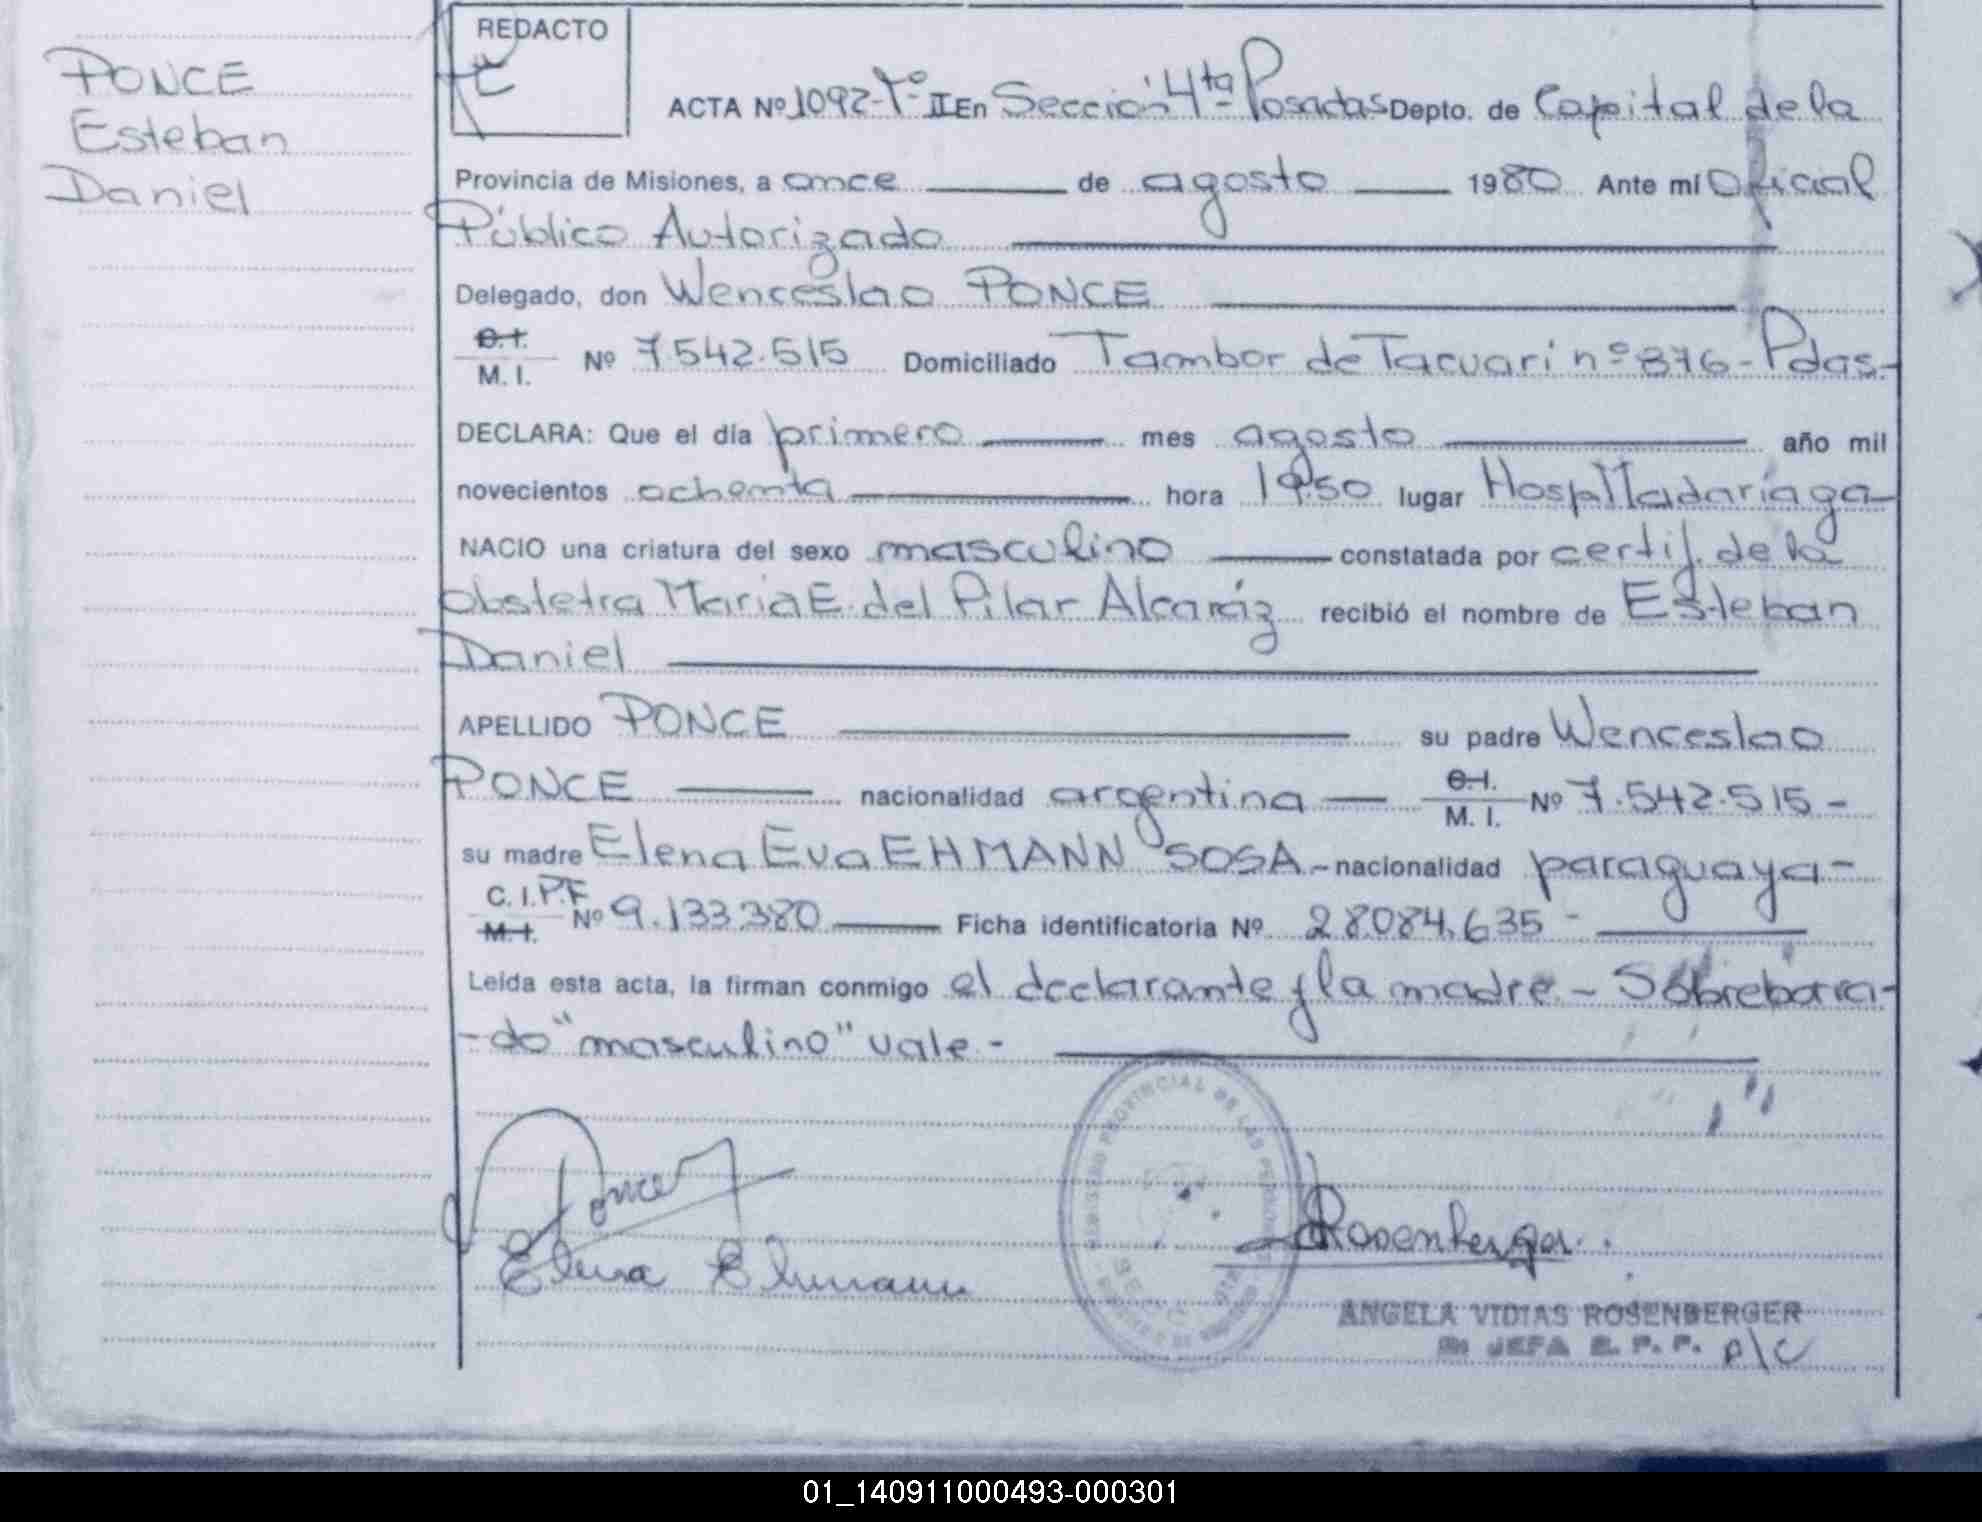 PONCE
Esteban
Daniel
REDACTO
ACTA Nº 1092-Tº II En Sección 4ta Posadas Depto. de Capital de la
Provincia de Misiones, a once de agosto 1980 Ante mí Oficial
Público Autorizado
Delegado, don Wenceslao PONCE
C.I.
M. I. Nº 7.542.515 Domiciliado Tambor de Tacuari nº 876-Pdas.-
DECLARA: Que el día primero mes agosto año mil
novecientos ochenta hora 19.50 lugar Hosp Madariaga
NACIO una criatura del sexo masculino constatada por certif. de la
obstetra Maria E. del Pilar Alcaráz recibió el nombre de Esteban
Daniel
APELLIDO PONCE su padre Wenceslao
PONCE nacionalidad argentina C.I. M. I. Nº 7.542.515-
su madre Elena Eva EHMANN SOSA - nacionalidad paraguaya-
C. I. P.F. M. I. Nº 9.133.380 Ficha identificatoria Nº 28084.635-
Leída esta acta, la firman conmigo el declarante y la madre - Sobreborra-
-do "masculino" vale -
Ponce
Elena Ehmann
REGISTRO PROVINCIAL DE LAS PERSONAS
Rosenberger
ANGELA VIDIAS ROSENBERGER
JEFA R. P. P. a/c
01_140911000493-000301